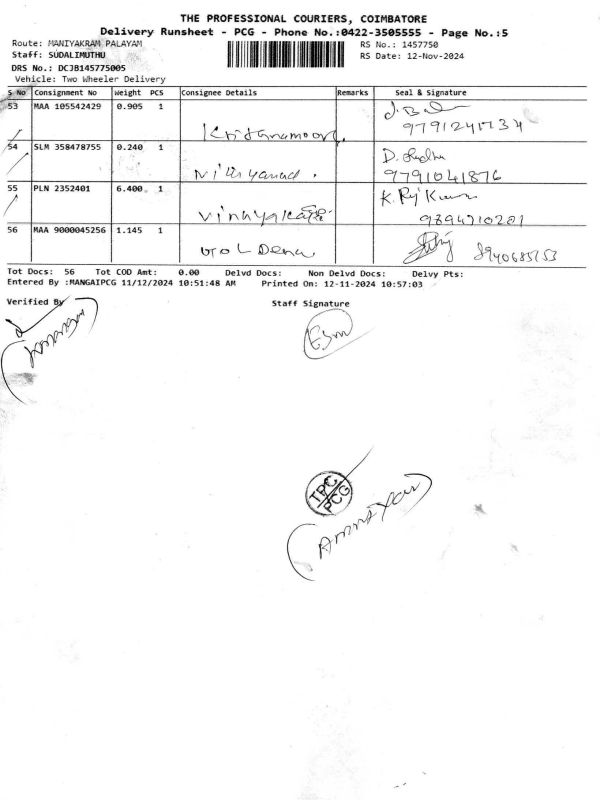 THE PROFESSIONAL COURIERS, COIMBATORE
Delivery Runsheet - PCG - Phone No.:0422-3505555 - Page No.:5
Route: MANIYAKRAM PALAYAM
RS No.: 1457750
Staff: SUDALIMUTHU
RS Date: 12-Nov-2024
DRS No.: DCJB145775005
Vehicle: Two Wheeler Delivery
S No Consignment No Weight PCS Consignee Details Remarks Seal & Signature
53 MAA 105542429 0.905 1
54 SLM 358478755 0.240 1
9791041876
55 PLN 2352401 6.400 1
56 MAA 9000045256 1.145 1
Tot Docs: 56 Tot COD Amt: 0.00 Delvd Docs: Non Delvd Docs: Delvy Pts:
Entered By :MANGAIPCG 11/12/2024 10:51:48 AM Printed On: 12-11-2024 10:57:03
Verified By Staff Signature
TPC
PCG